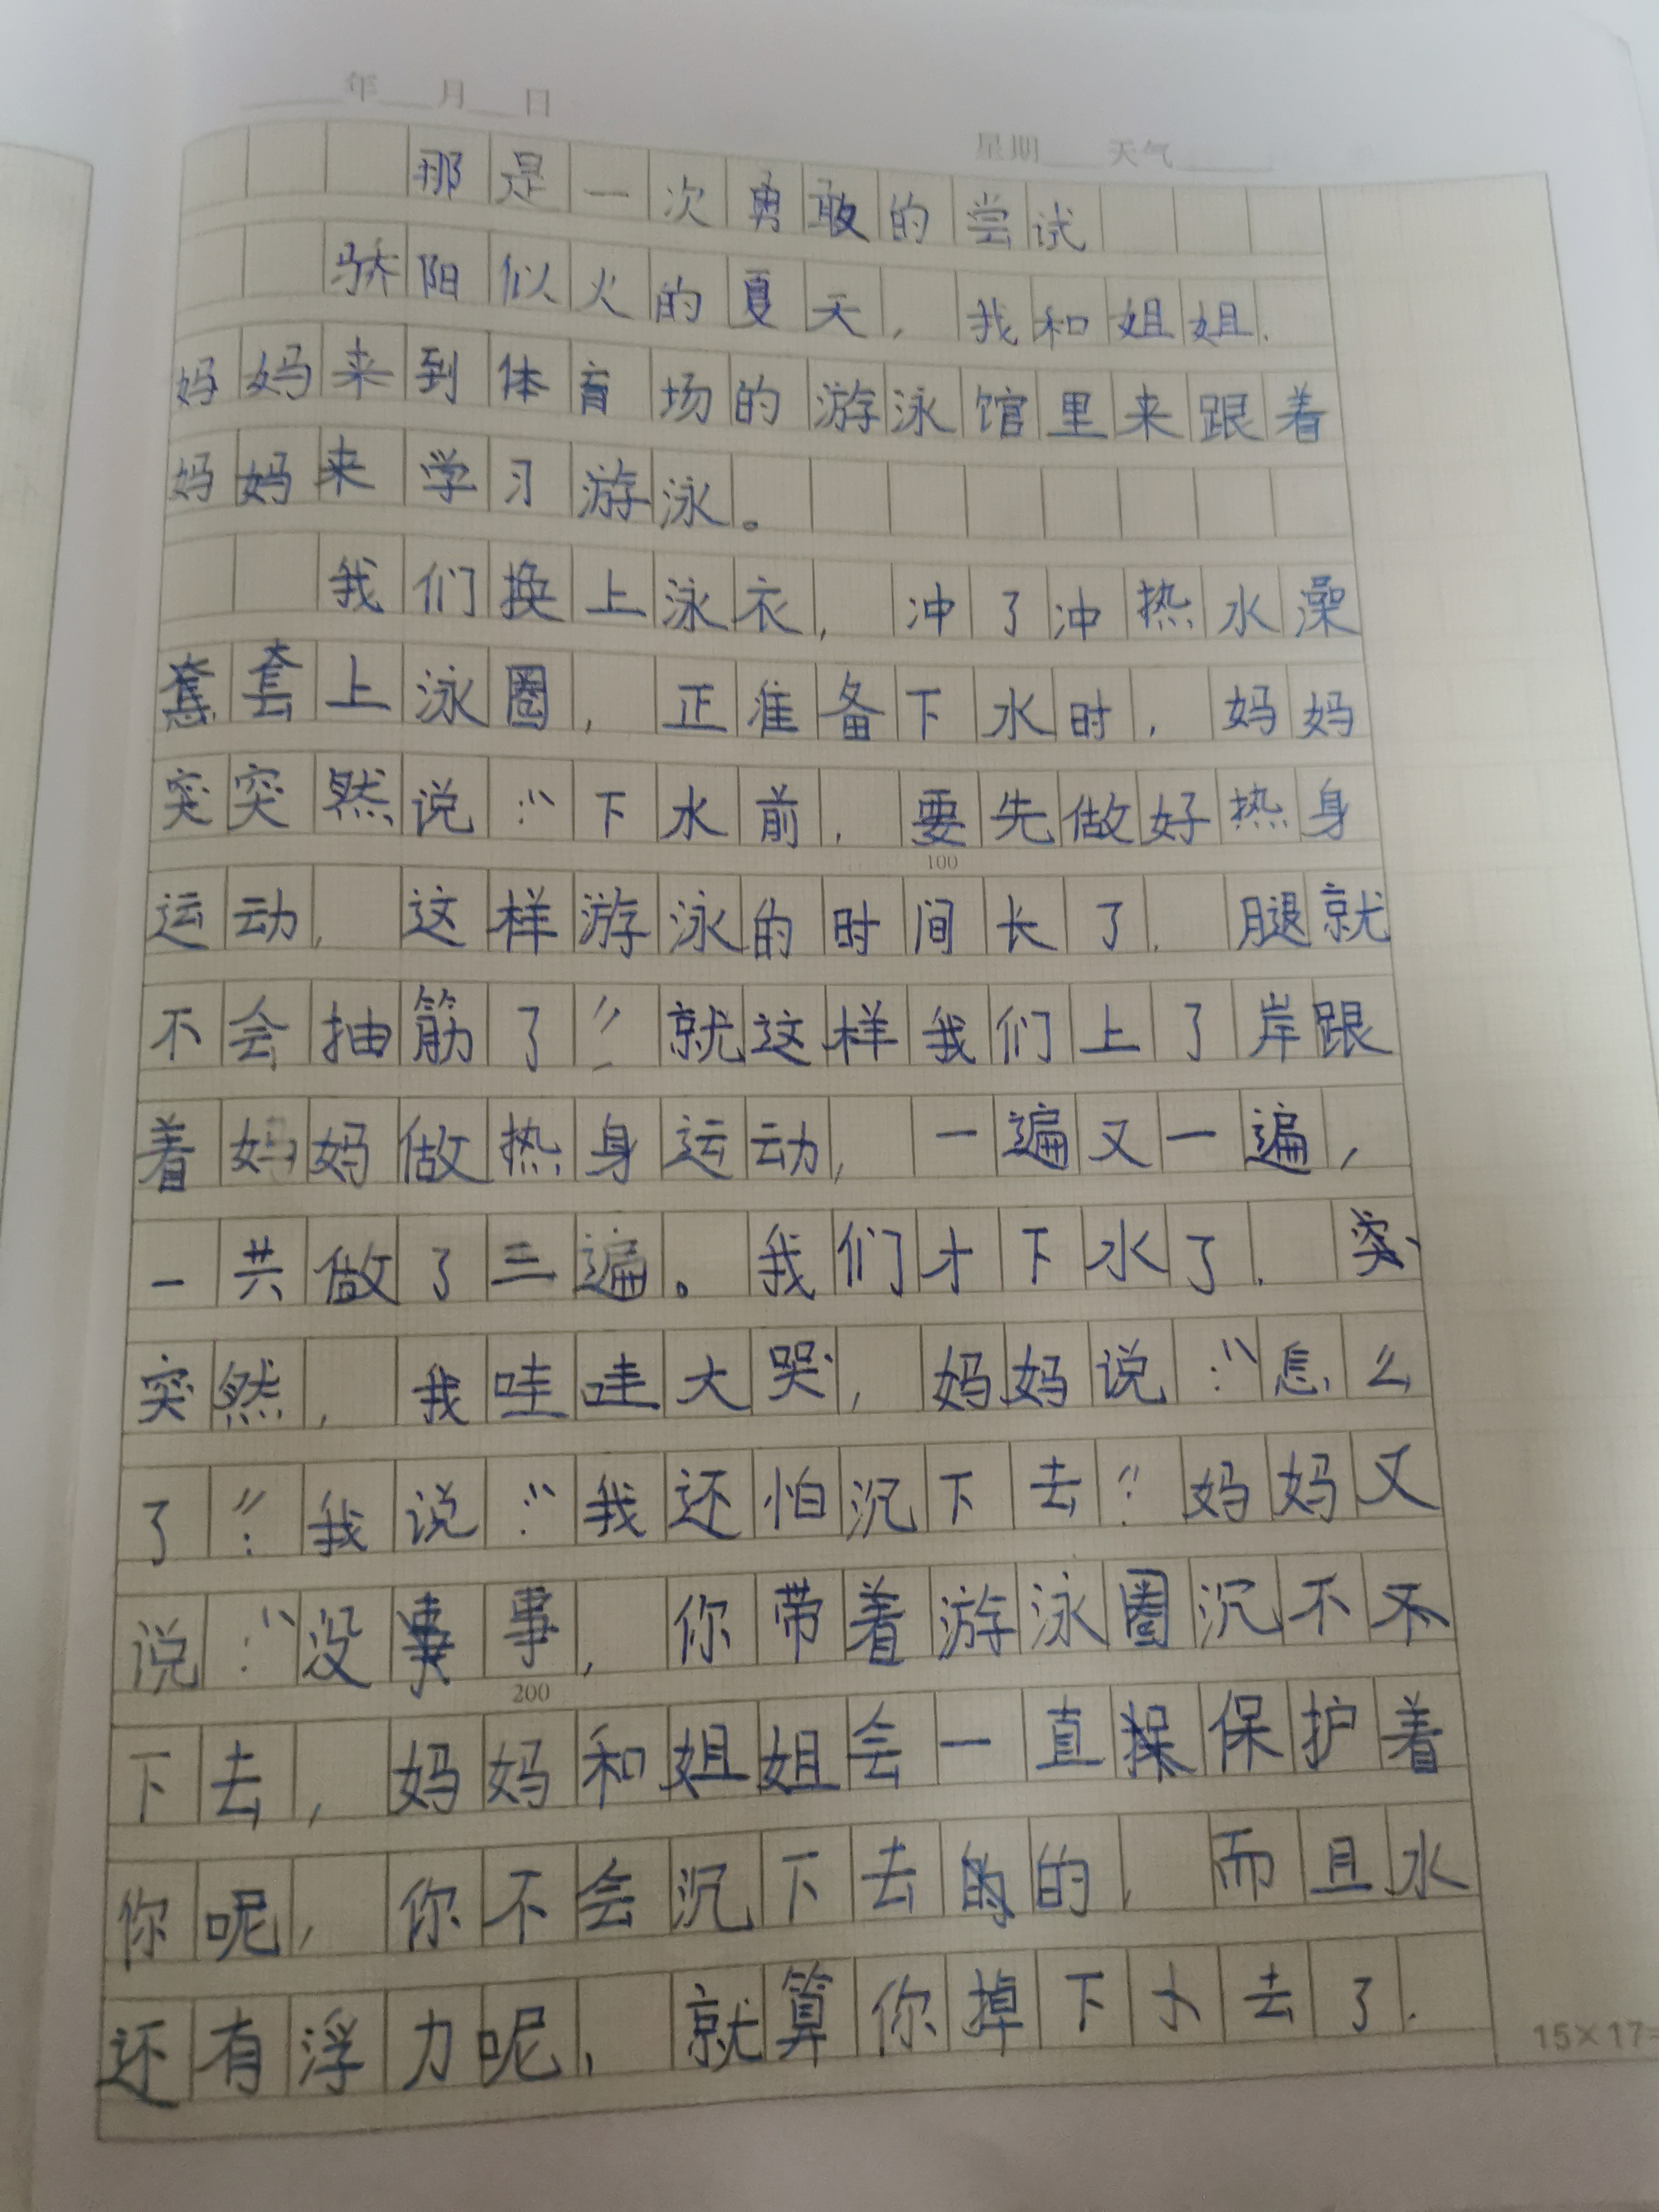 年 月 日
星期 天气
那是一次勇敢的尝试
骄阳似火的夏天，我和姐姐.
妈妈来到体育场的游泳馆里来跟着
妈妈来学习游泳。
我们换上泳衣，冲了冲热水澡
套上泳圈，正准备下水时，妈妈
突突然说：“下水前，要先做好热身
100
运动，这样游泳的时间长了，腿就
不会抽筋了”就这样我们上了岸跟
着妈妈做热身运动，一遍又一遍，
一共做了三遍。我们才下水了.
突然，我哇哇大哭，妈妈说：“怎么
了？”我说：“我还怕沉下去”妈妈又
说：“没事，你带着游泳圈沉不不
200
下去，妈妈和姐姐会一直保护着
你呢，你不会沉下去的，而且水
还有浮力呢，就算你掉下去了.
15×17=